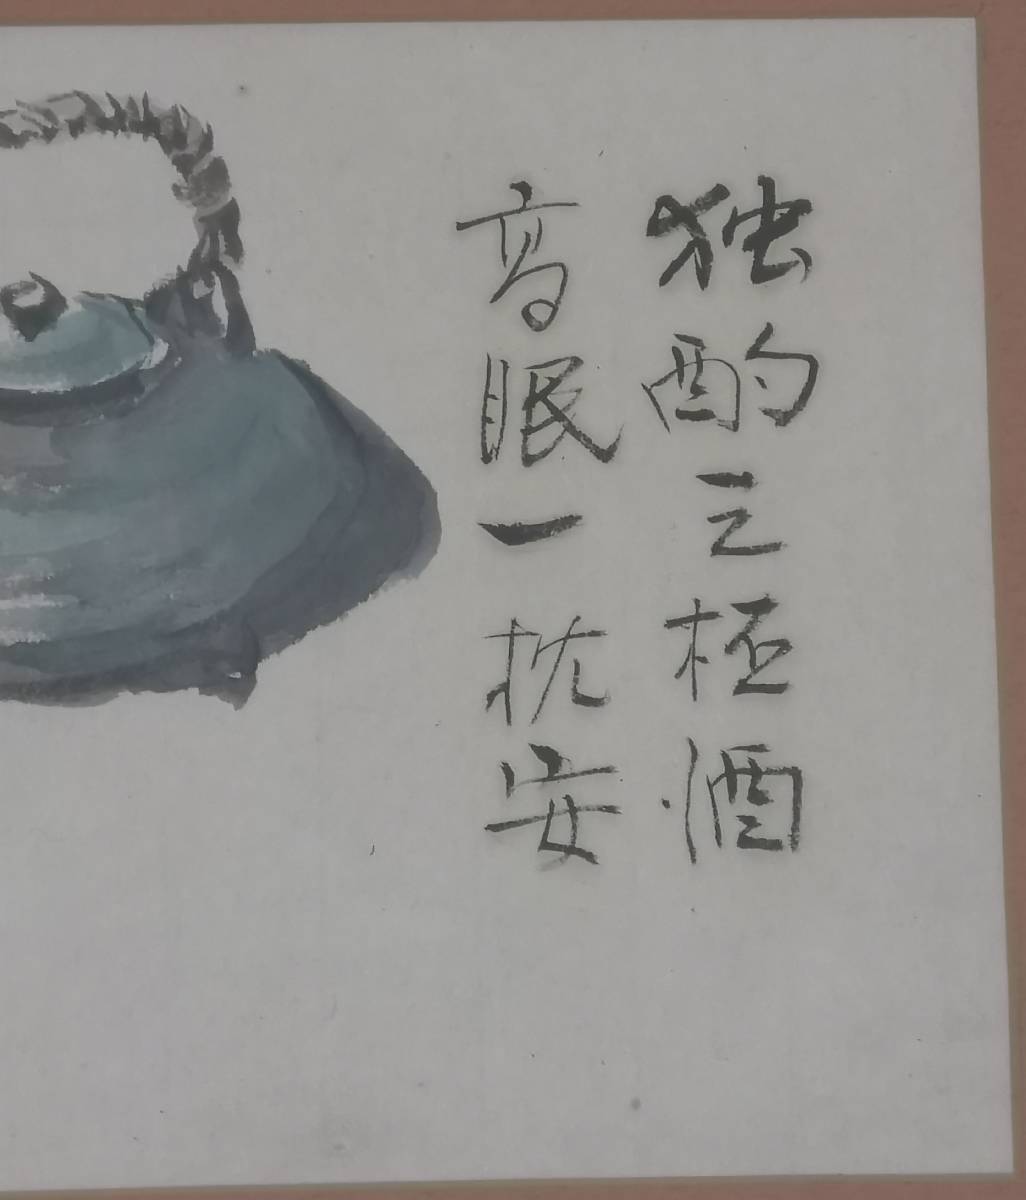 独酌三杯酒
高眠一枕安